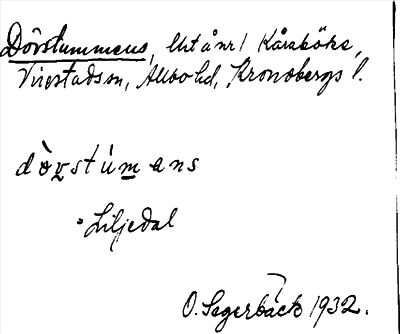 Dövstummens, Utå nr 1 Kåraböke,
Virestads sn, Allbo hd, Kronobergs l.
dòvstúmens
Liljedal
O. Segerbäck 1932.